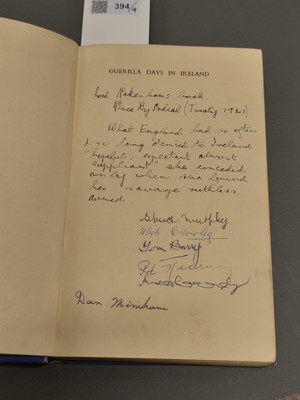 394/4
GUERILLA DAYS IN IRELAND
Lord Pakenham's book
Peace By Ordeal (Treaty 1921)
What England had so often
& so long denied to Ireland
"hopeful, expectant almost
suppliant" she conceded
only when she found
her savage ruthless
armed.
Spud Murphy
Tom Barry
Dan Minihane